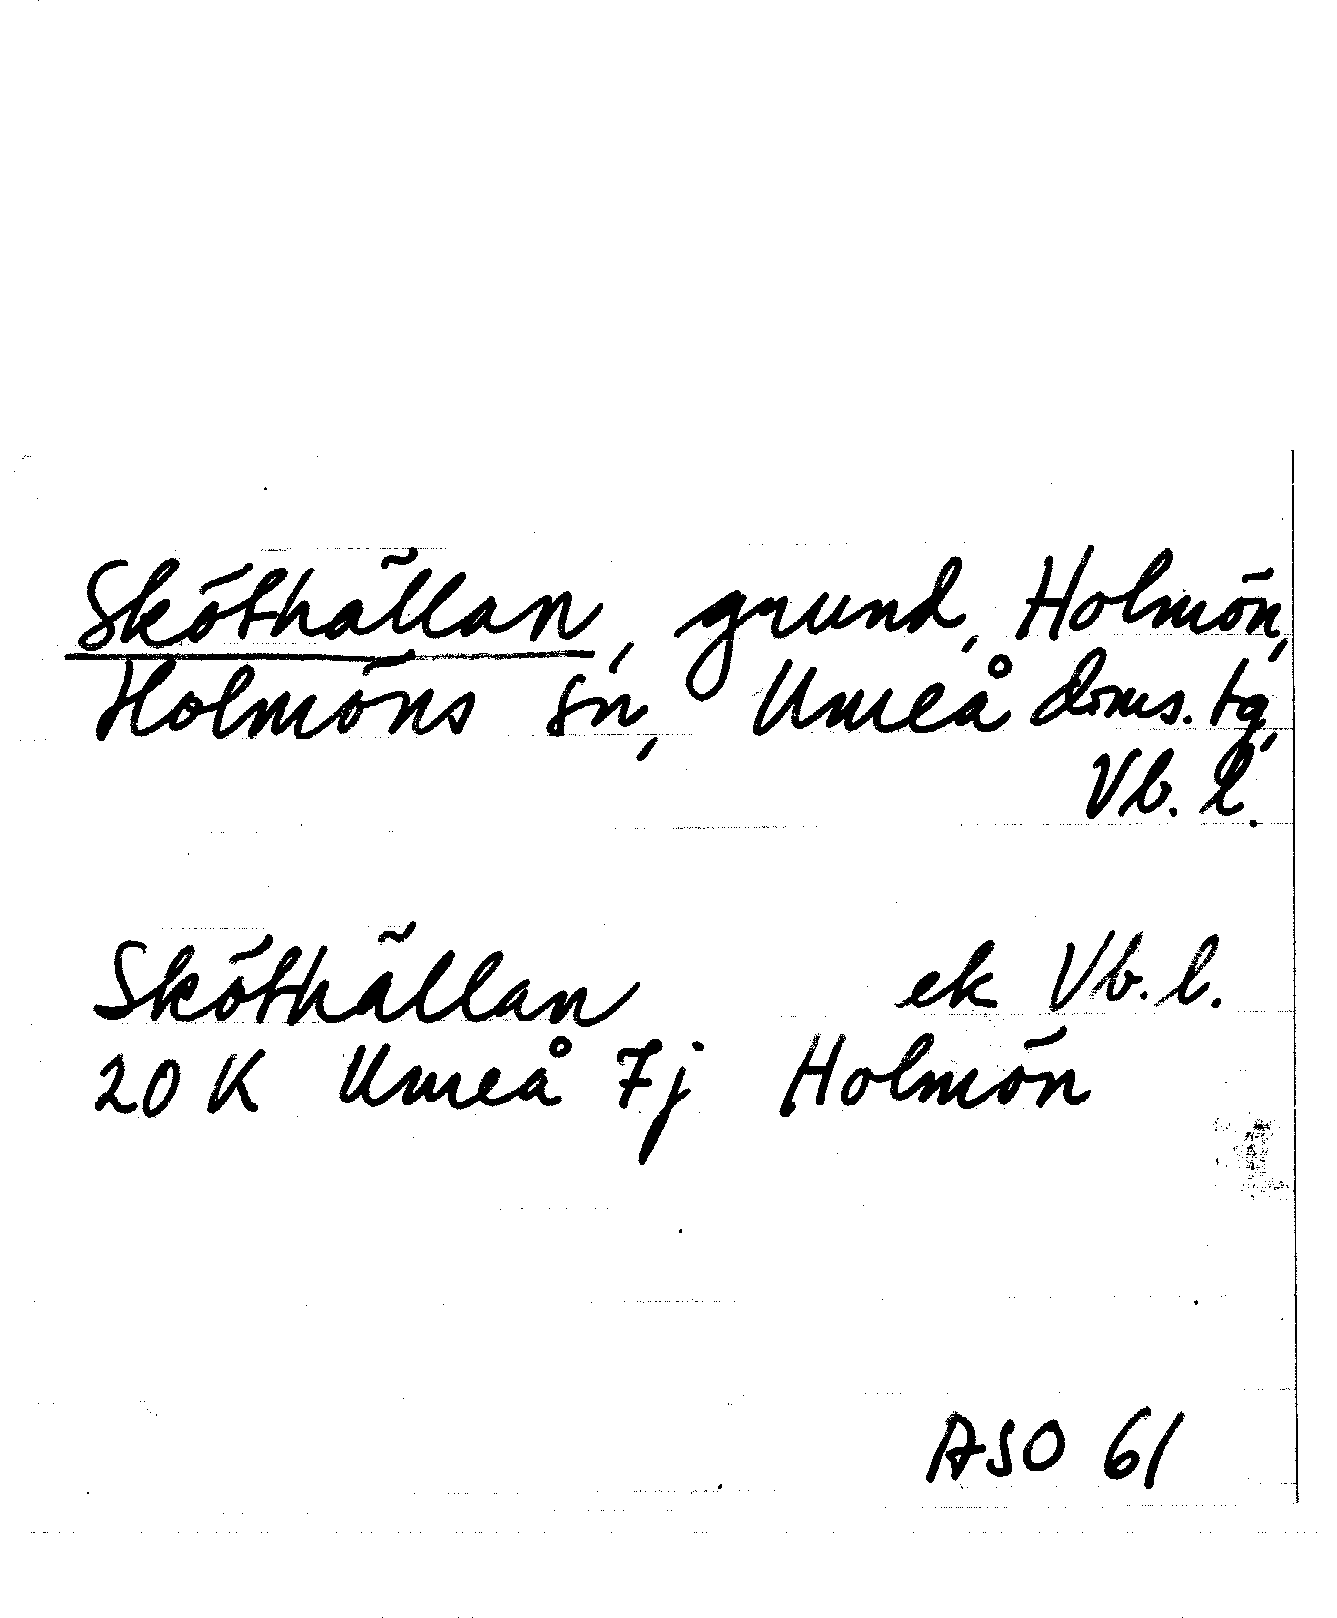 Sköthällan, grund, Holmön,
Holmöns sn, Umeå doms. tg,
Vb. l.
Sköthällan ek Vb. l.
20 K Umeå 7j Holmön
ASO 61